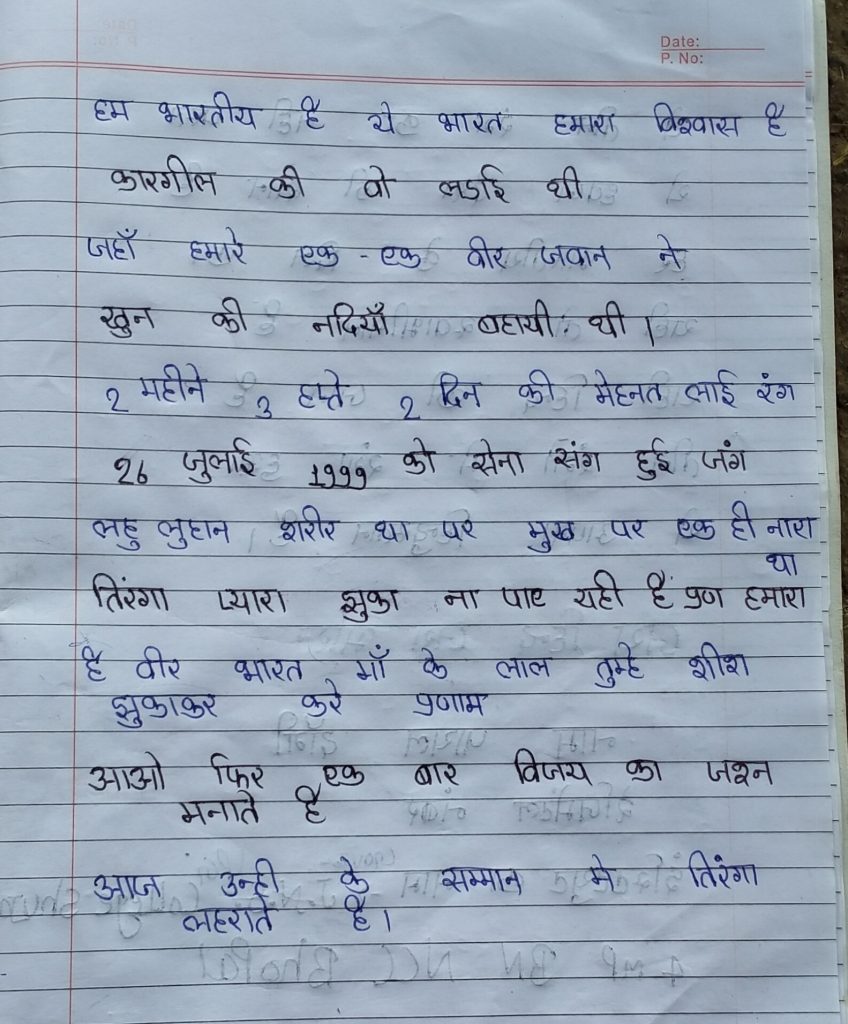 Date:
P. No:
हम भारतीय है ये भारत हमारा विश्वास है
कारगील की वो लडाई थी
जहाँ हमारे एक - एक वीर जवान ने
खुन की नदियाँ बहायी थी।
2 महीने 3 हप्ते 2 दिन की मेहनत लाई रंग
26 जुलाई 1999 को सेना संग हुई जंग
लहु लुहान शरीर था पर मुख पर एक ही नारा
था
तिरंगा प्यारा झुका ना पाए यही है प्रण हमारा
है वीर भारत माँ के लाल तुम्हे शीश
झुकाकर करे प्रणाम
आओ फिर एक बार विजय का जश्न
मनाते है
आज उन्ही के सम्मान मे तिरंगा
लहराते है।